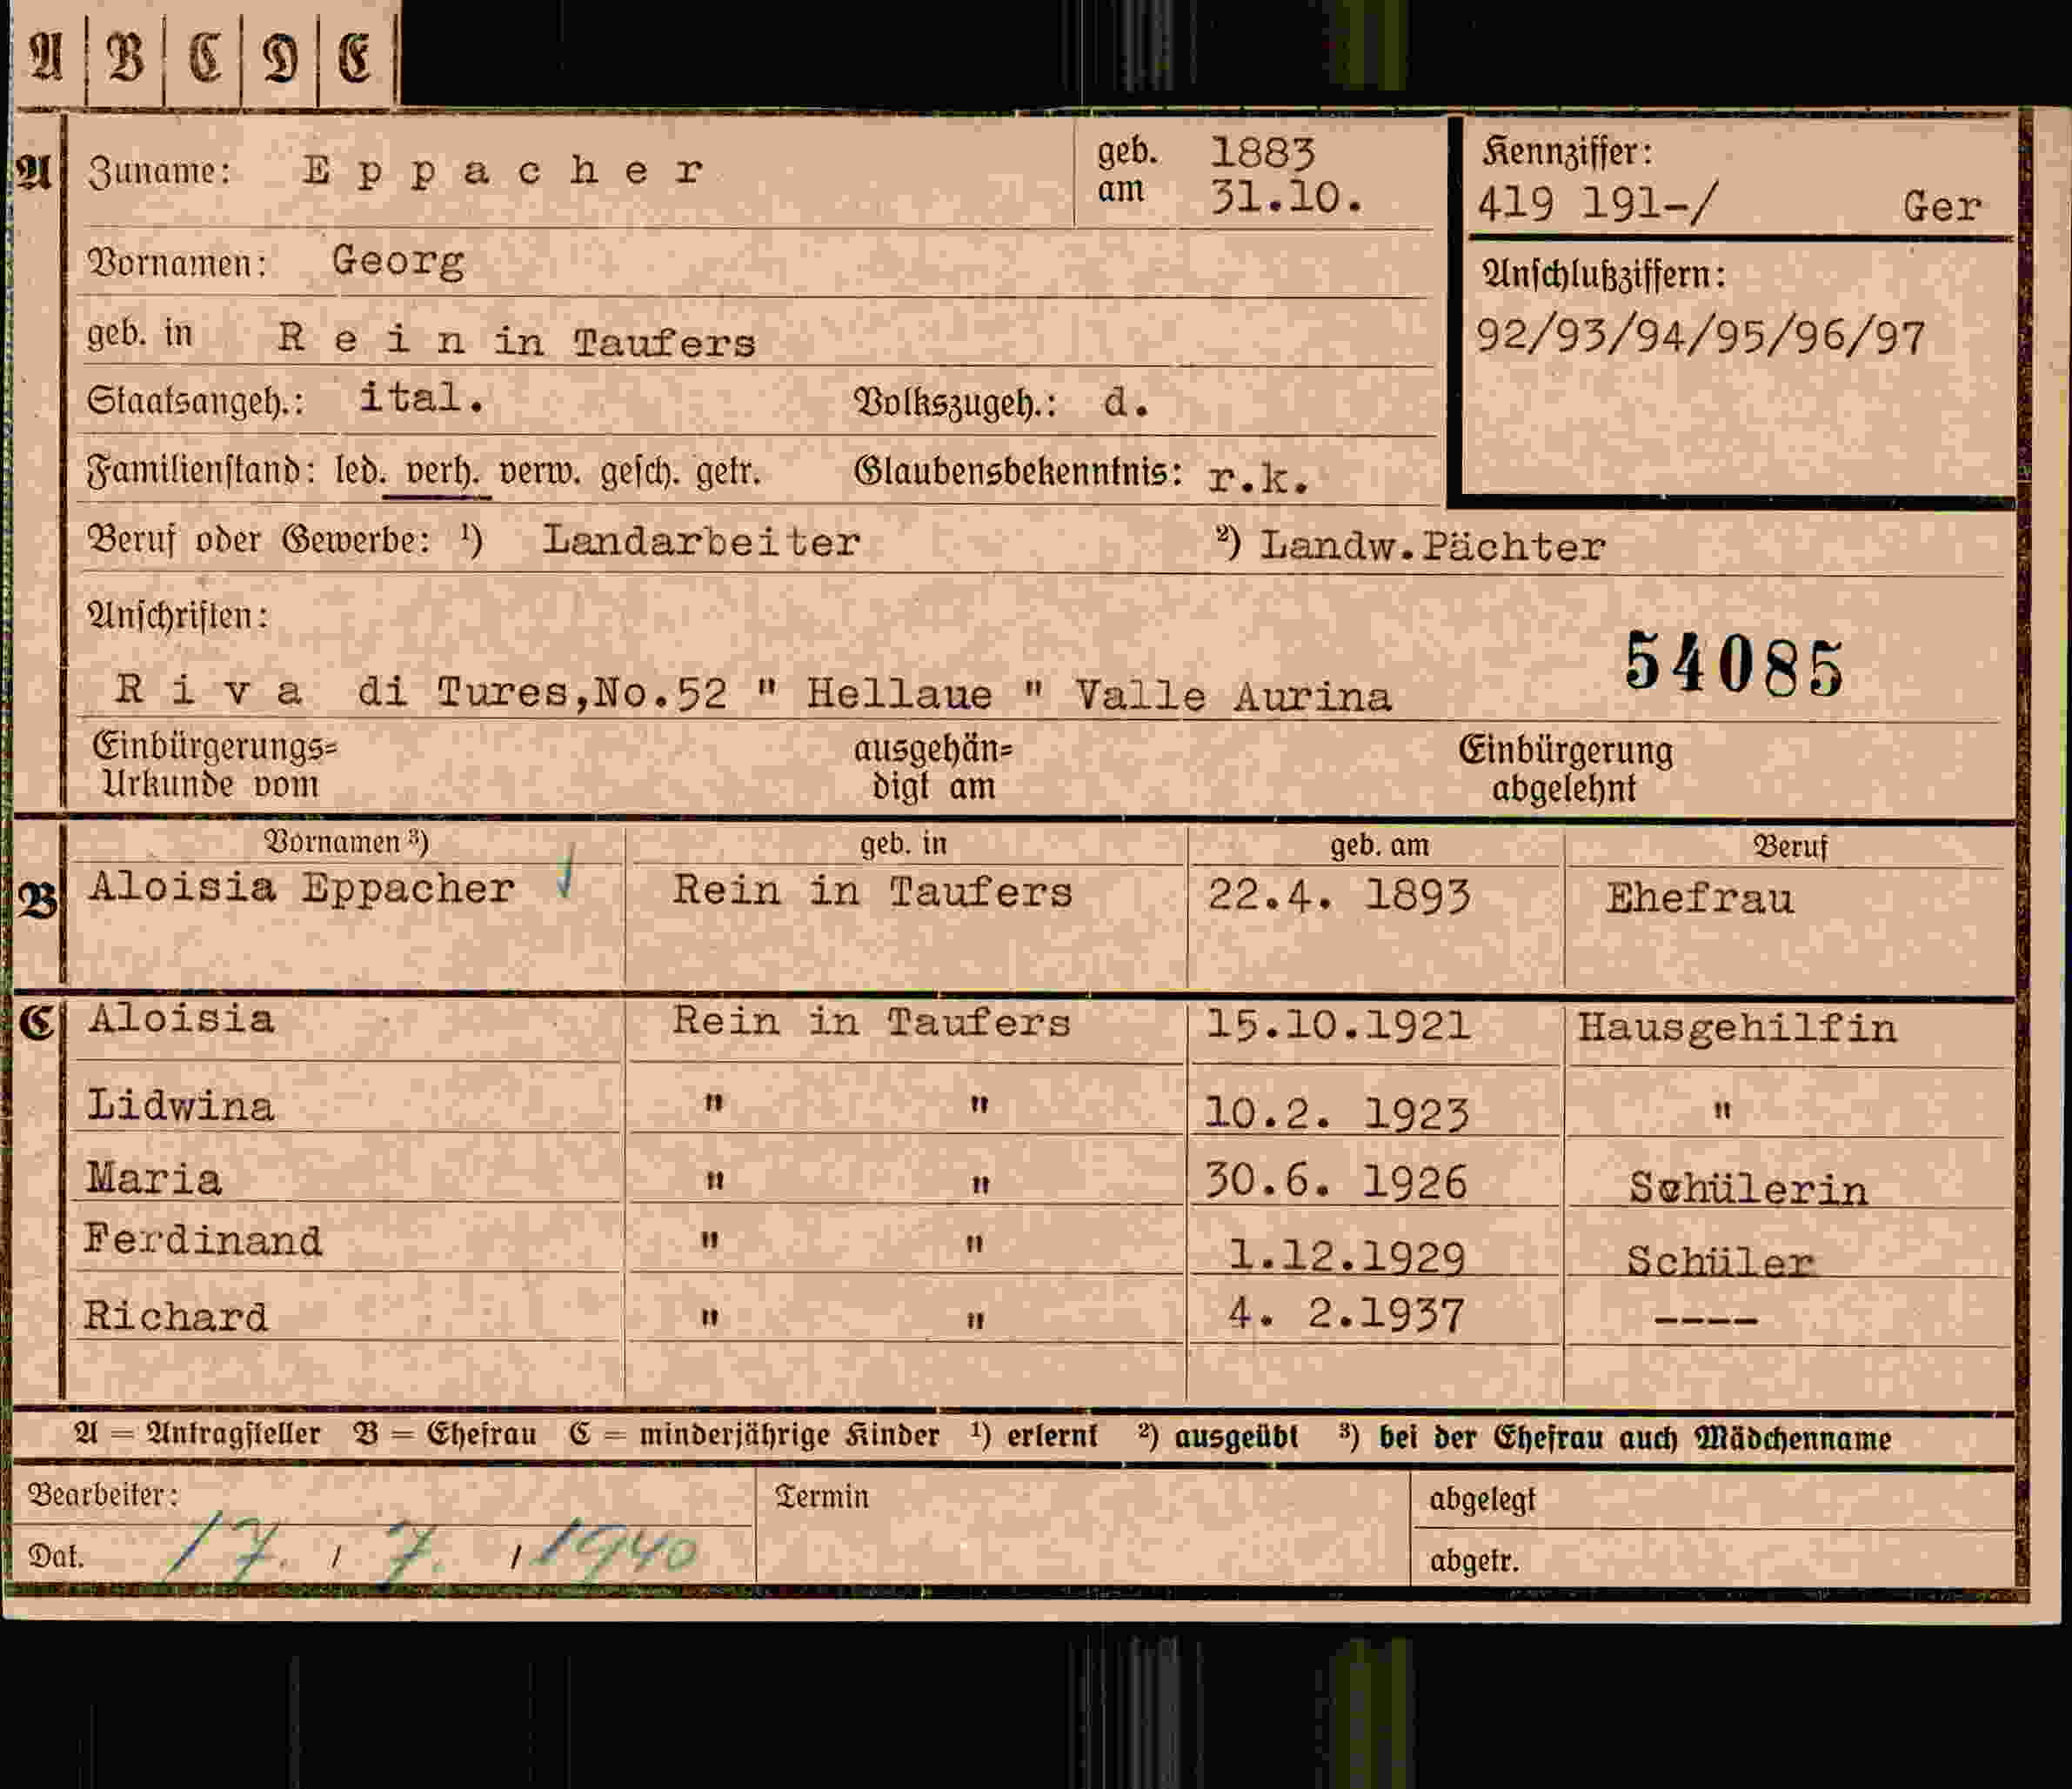 A B C D E
A Zuname: Eppacher geb. am 1883 31.10. Kennziffer:
419 191-/ Ger
Vornamen: Georg Anschlußziffern:
geb. in Rein in Taufers 92/93/94/95/96/97
Staatsangeh.: ital. Volkszugeh.: d.
Familienstand: led. verh. verw. gesch. getr. Glaubensbekenntnis: r.k.
Beruf oder Gewerbe: ¹) Landarbeiter ²) Landw.Pächter
Anschriften:
54085
Riva di Tures,No.52 " Hellaue " Valle Aurina
Einbürgerungs= ausgehän= Einbürgerung
Urkunde vom digt am abgelehnt
Vornamen ³) geb. in geb. am Beruf
B Aloisia Eppacher Rein in Taufers 22.4. 1893 Ehefrau
C Aloisia Rein in Taufers 15.10.1921 Hausgehilfin
Lidwina " " 10.2. 1923 "
Maria " " 30.6. 1926 Schülerin
Ferdinand " " 1.12.1929 Schüler
Richard " " 4. 2.1937 ----
A = Antragsteller B = Ehefrau C = minderjährige Kinder ¹) erlernt ²) ausgeübt ³) bei der Ehefrau auch Mädchenname
Bearbeiter: Termin abgelegt
Dat. 17. / 7. / 1940 abgetr.